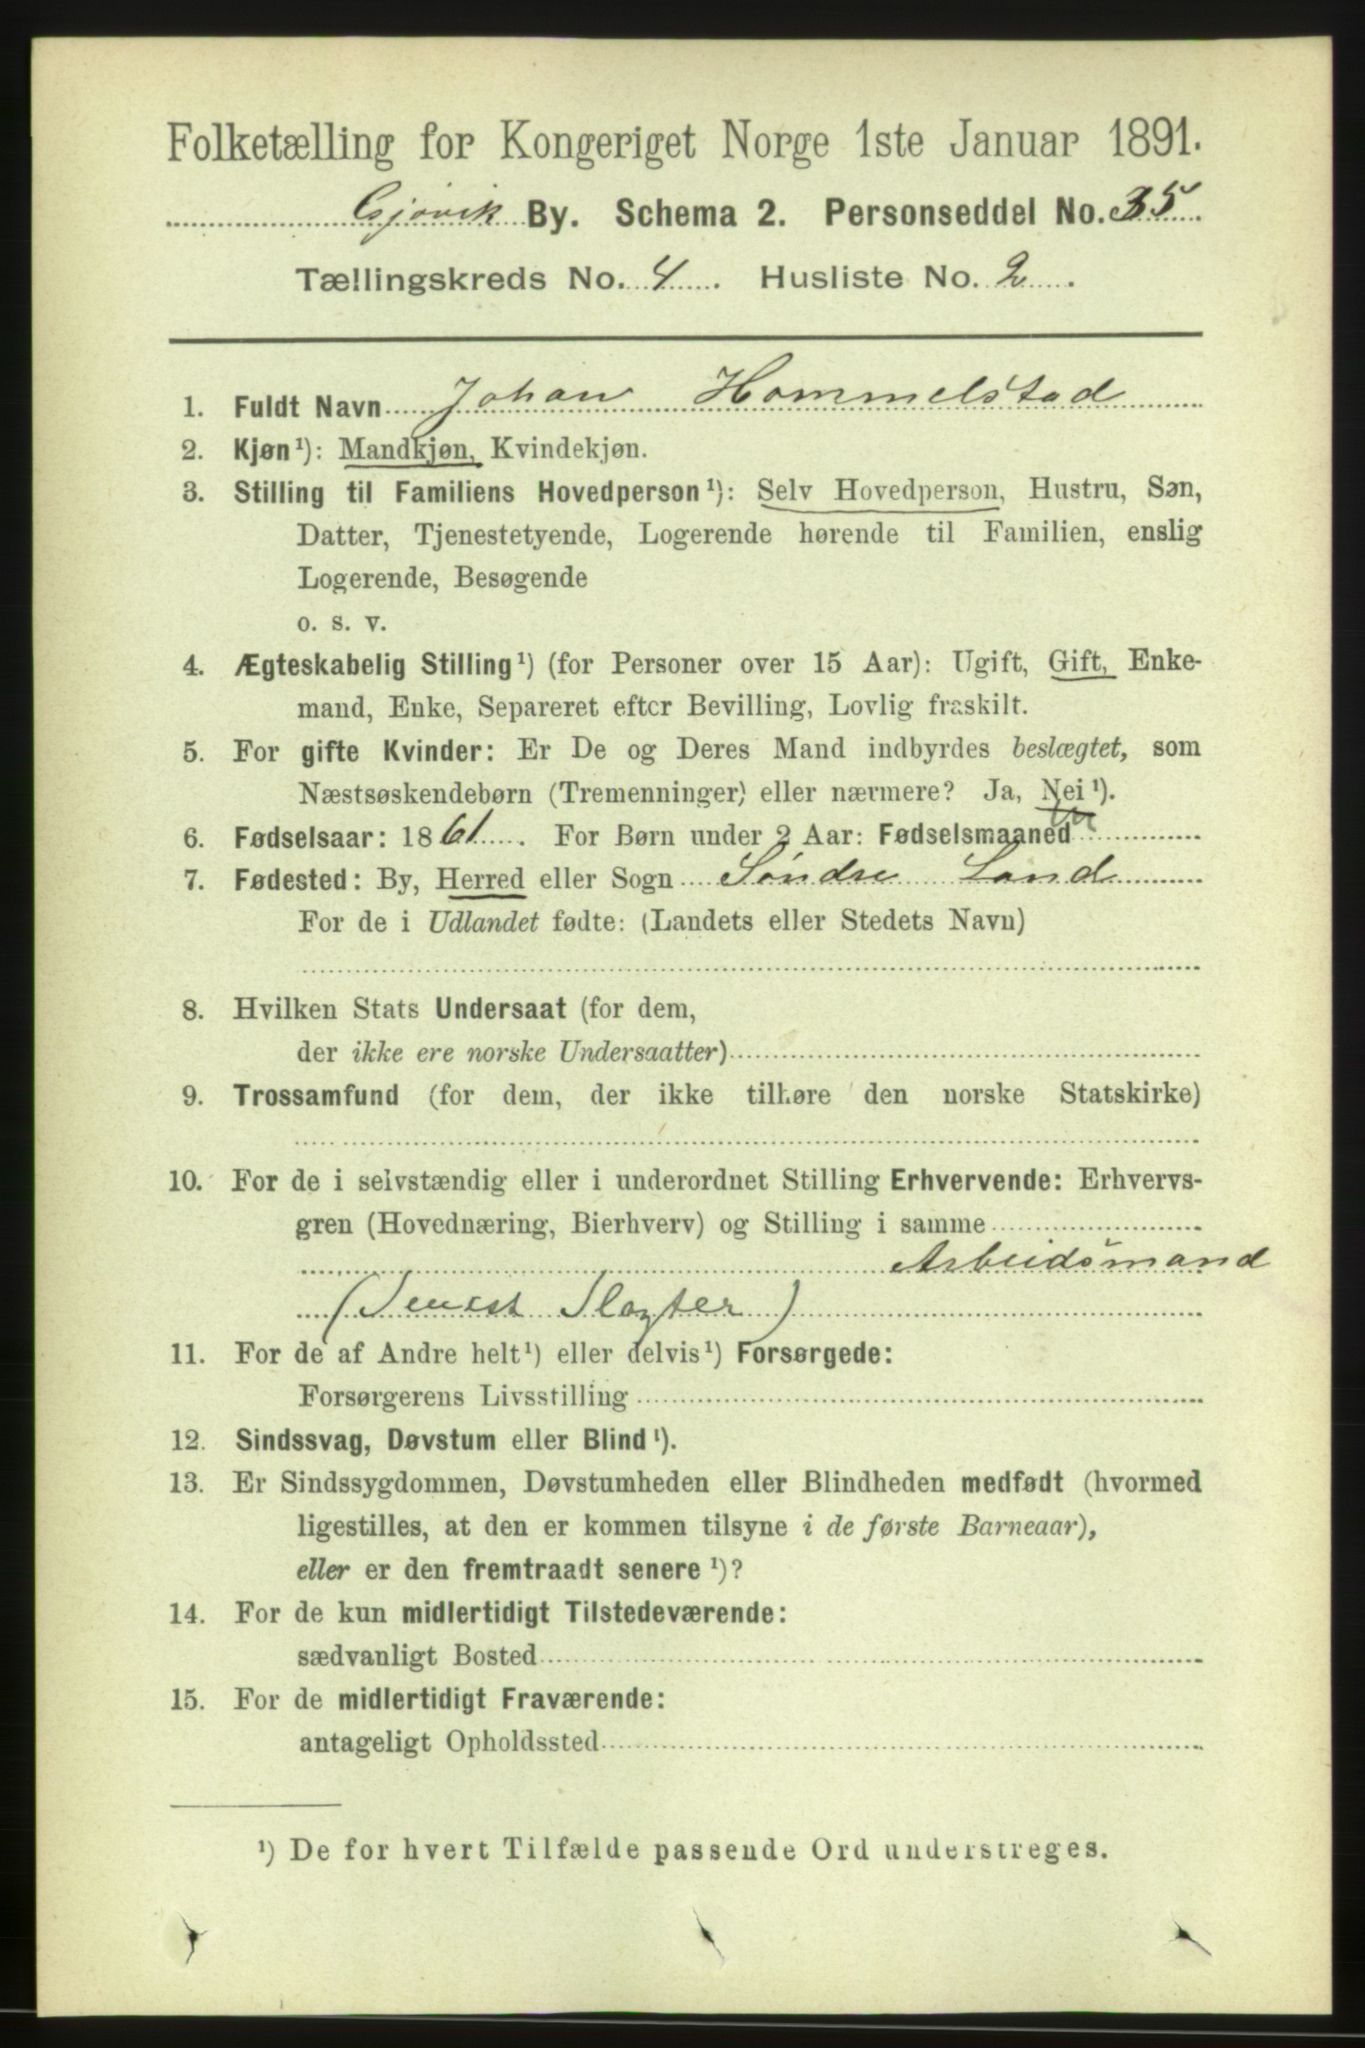 Folketælling for Kongeriget Norge 1ste Januar 1891.
Gjøvik By. Schema 2. Personseddel No. 35
Tællingskreds No. 4. Husliste No. 2.
1. Fuldt Navn Johan Hommelstad
2. Kjøn¹): Mandkjøn, Kvindekjøn.
3. Stilling til Familiens Hovedperson¹): Selv Hovedperson, Hustru, Søn,
Datter, Tjenestetyende, Logerende hørende til Familien, enslig
Logerende, Besøgende
o. s. v.
4. Ægteskabelig Stilling¹) (for Personer over 15 Aar): Ugift, Gift, Enke-
mand, Enke, Separeret efter Bevilling, Lovlig fraskilt.
5. For gifte Kvinder: Er De og Deres Mand indbyrdes beslægtet, som
Næstsøskendebørn (Tremenninger) eller nærmere? Ja, Nei¹).
6. Fødselsaar: 1861. For Børn under 2 Aar: Fødselsmaaned
7. Fødested: By, Herred eller Sogn Søndre Land
For de i Udlandet fødte: (Landets eller Stedets Navn)
8. Hvilken Stats Undersaat (for dem,
der ikke ere norske Undersaatter)
9. Trossamfund (for dem, der ikke tilhøre den norske Statskirke)
10. For de i selvstændig eller i underordnet Stilling Erhvervende: Erhvervs-
gren (Hovednæring, Bierhverv) og Stilling i samme
Arbeidsmand
(Senest Slagter)
11. For de af Andre helt¹) eller delvis¹) Forsørgede:
Forsørgerens Livsstilling
12. Sindssvag, Døvstum eller Blind¹).
13. Er Sindssygdommen, Døvstumheden eller Blindheden medfødt (hvormed
ligestilles, at den er kommen tilsyne i de første Barneaar),
eller er den fremtraadt senere¹)?
14. For de kun midlertidigt Tilstedeværende:
sædvanligt Bosted
15. For de midlertidigt Fraværende:
antageligt Opholdssted
¹) De for hvert Tilfælde passende Ord understreges.